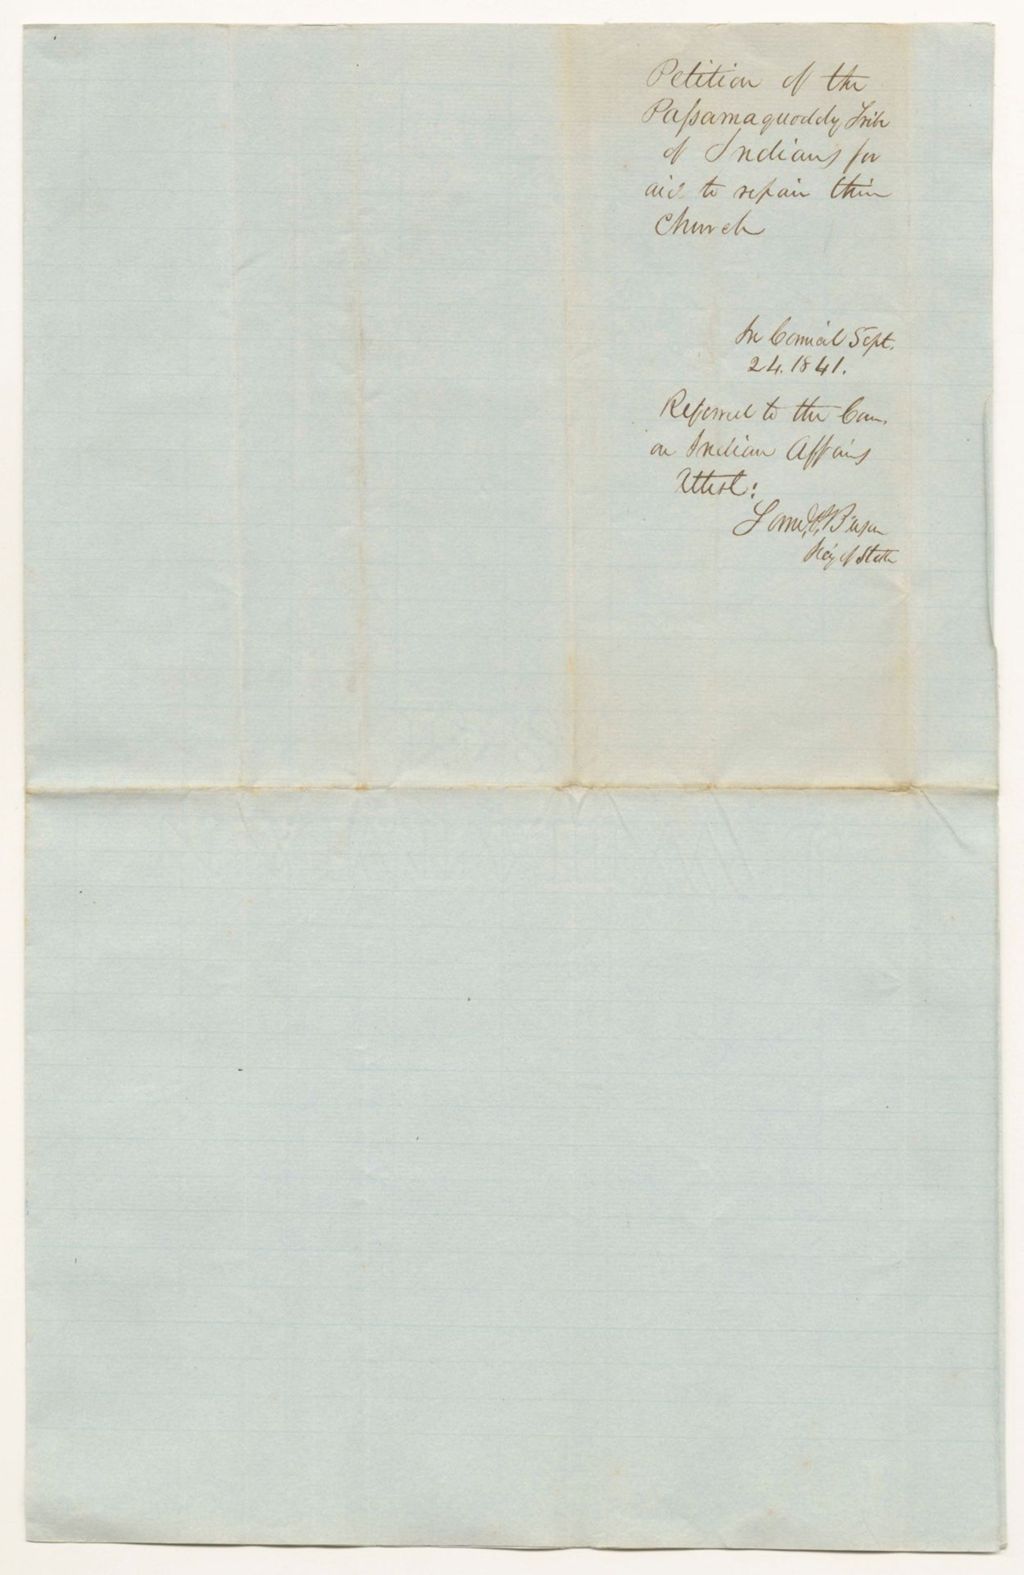 Petition of the
Passamaquoddy Tribe
of Indians for
aid to repair their
Church
In Council Sept.
24. 1841.
Referred to the Com.
on Indian Affairs
Attest:
Saml.
Secy of State